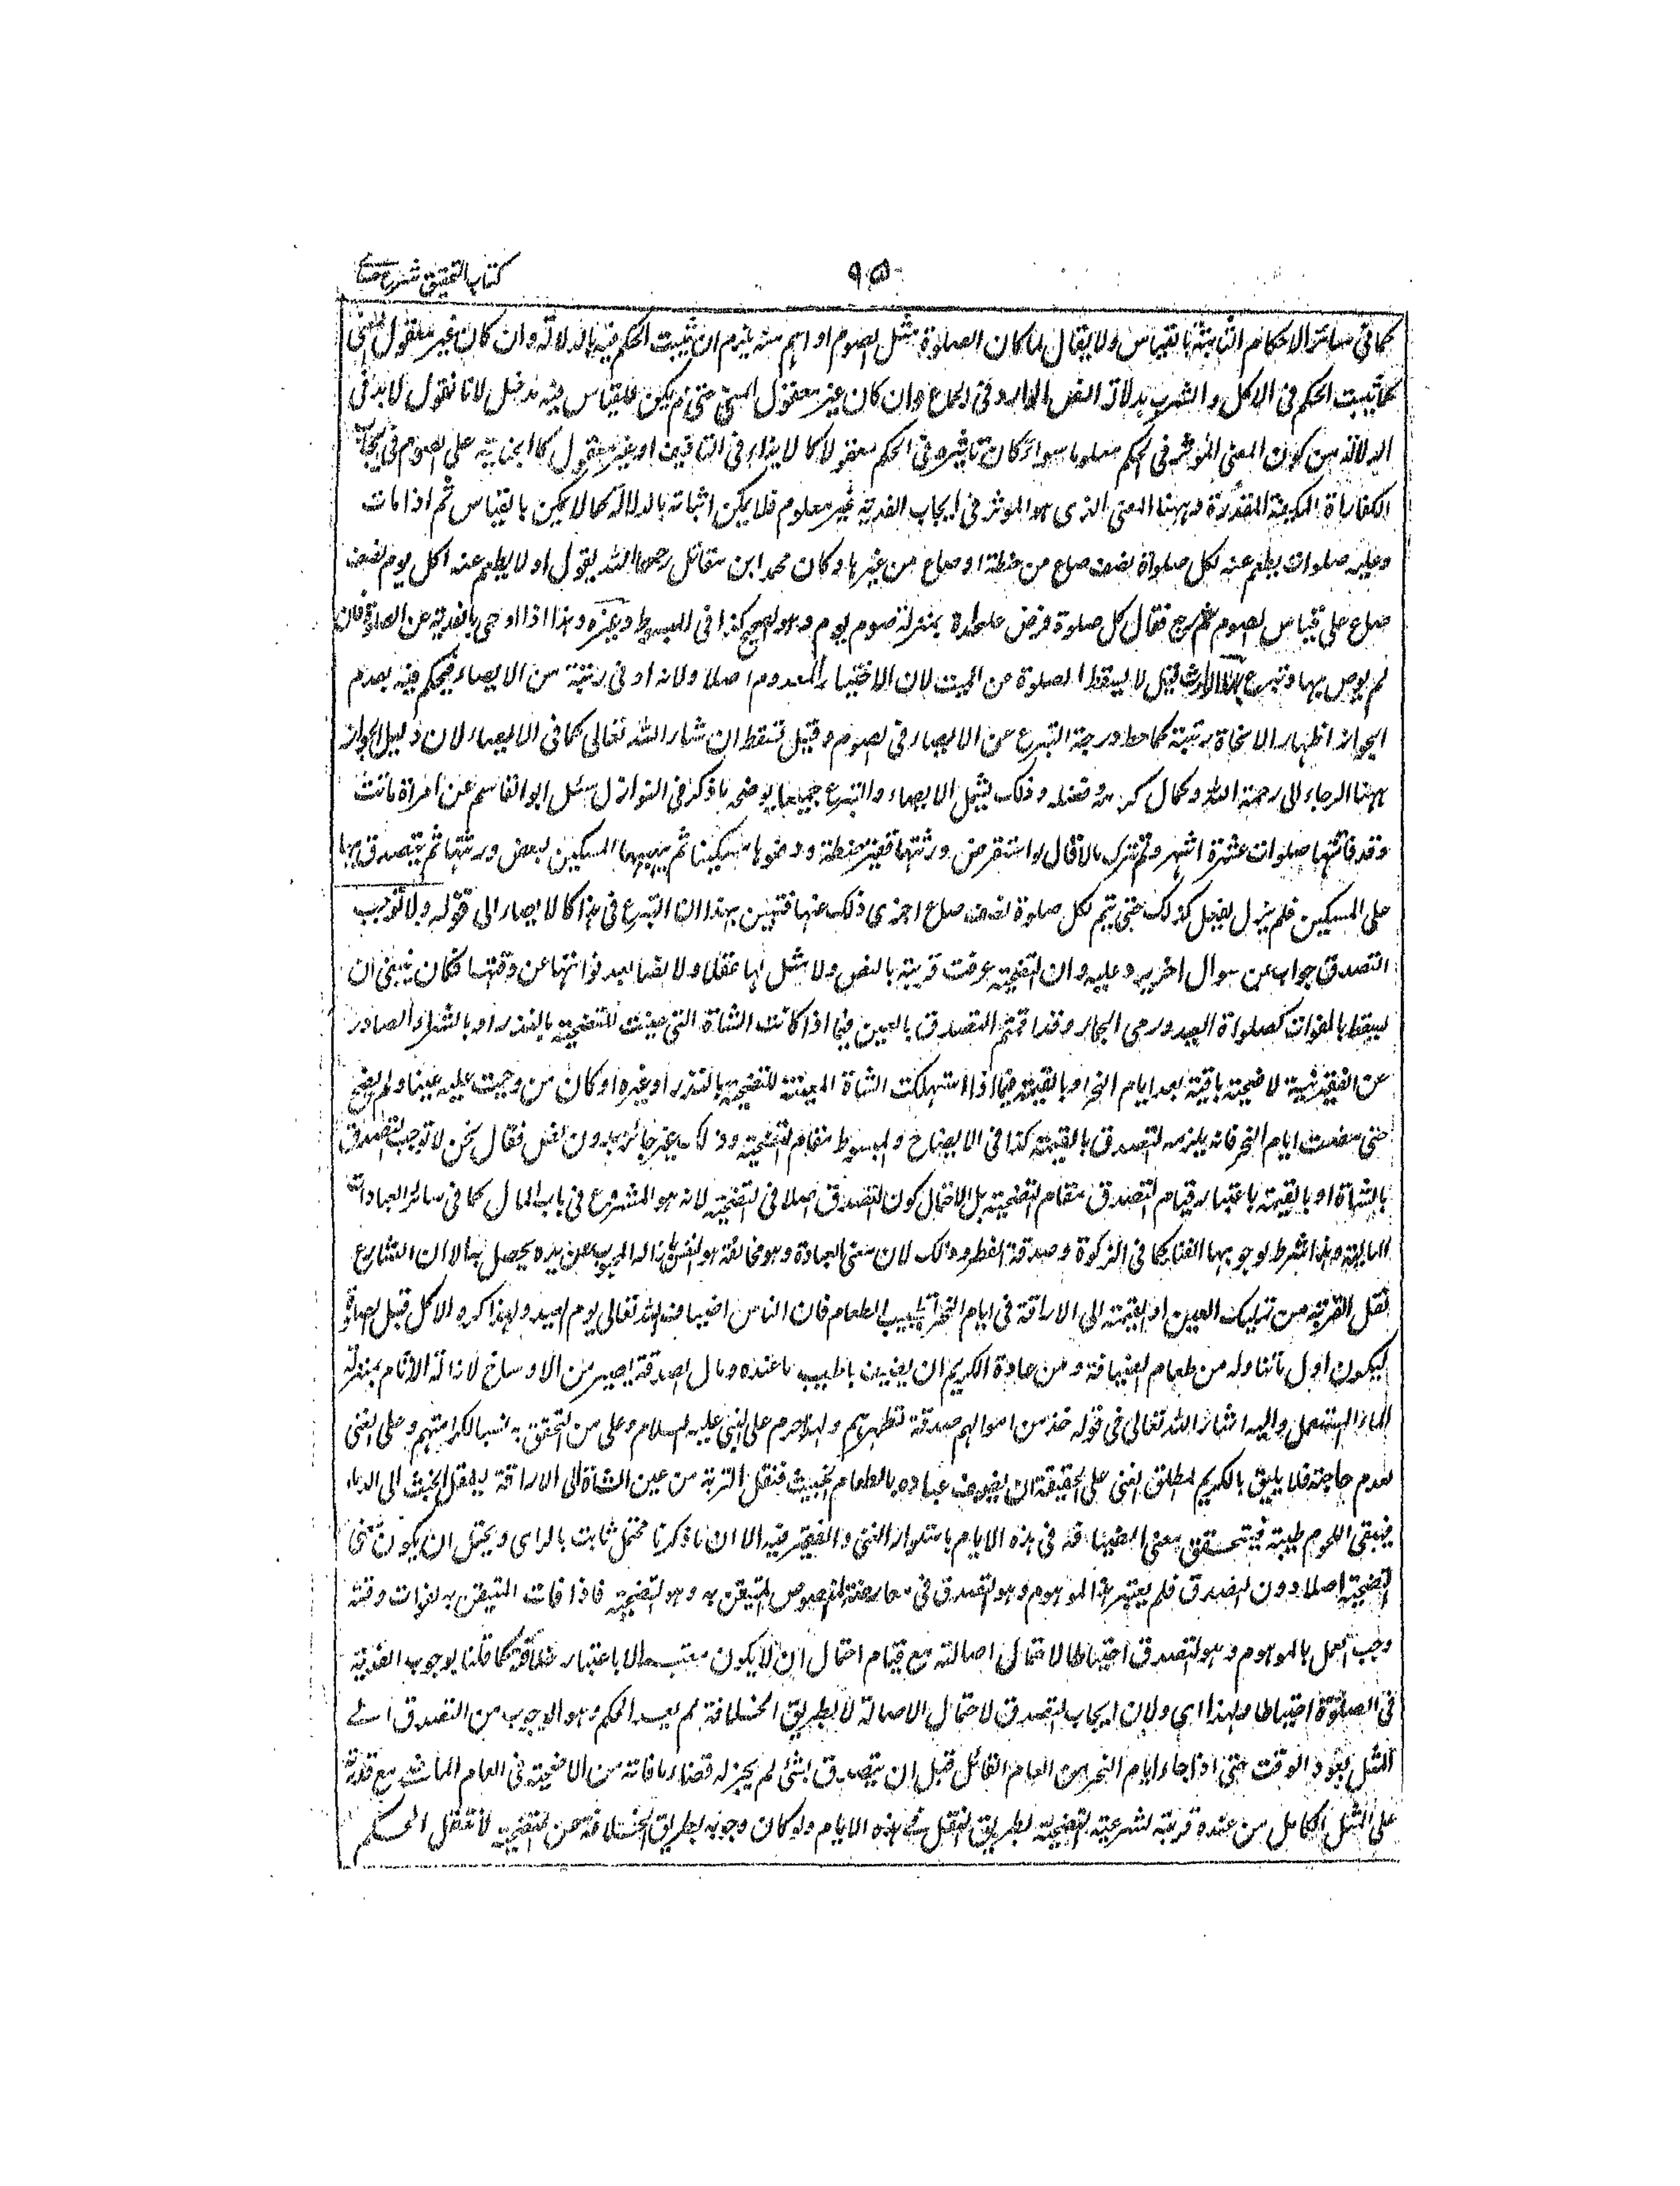 كتاب التحقيق شرح حسامي
٩٥
كما في سائر الاحكام الثابتة بالقياس ولا يقال لما كان الصلوة مثل الصوم او اهم منه يلزم ان يثبت الحكم فيه بالدلالة وان كان غير معقول المعنى
كما يثبت الحكم في الاكل والشرب بدلالة النص الوارد في الجماع وان كان غير معقول المعنى حتى لم يكن للقياس فيه مدخل لانا نقول لا بد في
الدلالة من كون المعنى المؤثر في الحكم معلوما سواء كان تاثيره في الحكم معقولا كالايذاء في التافيف او غير معقول كالجناية على الصوم في ايجاب
الكفاراة المكيفة المقدرة وههنا المعنى الذى هو الموثر في ايجاب الفدية غير معلوم فلا يمكن اثباته بالدلالة كما لا يمكن بالقياس ثم اذا مات
وعليه صلوات يطعم عنه لكل صلواة نصف صاع من حنطة او صاع من غيرها وكان محمد ابن مقاتل رحمه الله يقول او لا يطعم عنه لكل يوم نصف
صاع على قياس الصوم ثم رجع فقال كل صلوة فرض عليحدة بمنزلة صوم يوم وهو الصحيح كذا في المبسوط وغيره وهذا اذا اوصى بالفدية عن الصلوة فان
لم يوص بها وتبرع بها الوارث قيل لا يسقط الصلوة عن الميت لان الاختيار المعدوم اصلا ولانه ادنى رتبة من الايصاء فيحكم فيه بعدم
الجواز اظهارا لانحطاط رتبته كما حط درجة التبرع عن الايصاء في الصوم وقيل تسقط ان شاء الله تعالى كما في الايصاء لان دليل الجواز
ههنا الرجاء الى رحمة الله وكمال كرمه وفضله وذلك يشمل الايصاء والتبرع جميعا يوضحه ما ذكر في النوازل سئل ابو القاسم عن امراة ماتت
وقد فاتتها صلوات عشرة اشهر ولم تترك مالا قال لو استقرض ورثتها قفيز حنطة ودفعوها مسكينا ثم يهبها المسكين لبعض ورثتها ثم يتصدق بها
على المسكين فلم يزل يفعل كذلك حتى يتم لكل صلوة نصف صاع اجزى ذلك عنها فتبين بهذا ان التبرع في هذا كالايصاء الى قوله ولا توجب
التصدق جواب عن سوال اخر يرد عليه وان التضحية عرفت قربة بالنص ولا مثل لها عقلا ولا نصا بعد فواتها عن وقتها فكان ينبغى ان
يسقط بالفوات كصلواة العيد ورمى الجمار وقد اقمتم التصدق بالعين فيما اذا كانت الشاة التى عينت للتضحية بالنذر او بالشراء الصادر
عن الفقير بنية الاضحية باقية بعد ايام النحر او بالقيمة فيما اذا استهلكت الشاة المعينة للتضحية بالنذر او غيره او كان من وجبت عليه غنيا ولم يضح
حتى مضت ايام النحر فانه يلزمه التصدق بالقيمة كذا في الايضاح والمبسوط مقام التضحية وذلك غير جائز بدون نص فقال نحن لا توجب التصدق
بالشاة او بالقيمة باعتبار قيام التصدق مقام التضحية بل لاحتمال كون التصدق اصلا في التضحية لانه هو المشروع في باب المال كما في سائر العبادات
المالية ولهذا شرط لوجوبها الغنا كما في الزكوة وصدقة الفطر وذلك لان معنى العبادة وهو مخالفة هو النفس بازالة المحبوب عن يده يحصل به الا ان الشارع
نقل القربة من تمليك العين او القيمة الى الاراقة في ايام النحر تطييب الطعام فان الناس اضياف الله تعالى يوم العيد ولهذا كره الاكل قبل الصلوة
ليكون اول ما تناوله من طعام الضيافة ومن عادة الكريم ان يضيف باطيب ما عنده ومال الصدقة يصير من الاوساخ لازالة الاثام بمنزلة
الماء المستعمل واليه اشار الله تعالى في قوله خذ من اموالهم صدقة تطهرهم ولهذا حرم على النبى عليه السلام وعلى من التحق به نسبا لكرامتهم وعلى الغنى
لعدم حاجته فلا يليق بالكريم المطلق الغنى على الحقيقة ان يضيف عباده بالطعام الخبيث فنقل القربة من عين الشاة الى الاراقة لينقل الخبث الى الدماء
فيبقى اللحوم طيبة فيتحقق معنى الضيافة في هذه الايام باستواء الغنى والفقير فيه الا ان ما ذكرنا محتمل ثابت بالراى ويحتمل ان يكون
التضحية اصلا دون التصدق فلم يعتبر هذا الموهوم وهو التصدق في معارضة المنصوص المتيقن به وهو التضحية فاذا فات المتيقن به لفوات وقته
وجب العمل بالموهوم وهو التصدق احتياطا لاحتمال اصالته مع قيام احتمال ان لا يكون معتبرا الا باعتبار خلافته كما قلنا بوجوب الفدية
في الصلوة احتياطا ولهذا اى ولان ايجاب التصدق لاحتمال الاصالة لا بطريق الخلافة لم يعد الحكم وهو الوجوب من التصدق الى
المثل بعود الوقت حتى اذا جاء ايام النحر من العام القابل قبل ان يتصدق بشئ لم يجز له قضاء ما فاته من الاضحية في العام الماضى مع قدرته
على المثل الكامل من عنده قربة لشرعية التضحية بطريق النفل في هذه الايام ولو كان وجوبه بطريق الخلافة عن التضحية لانتقل الحكم